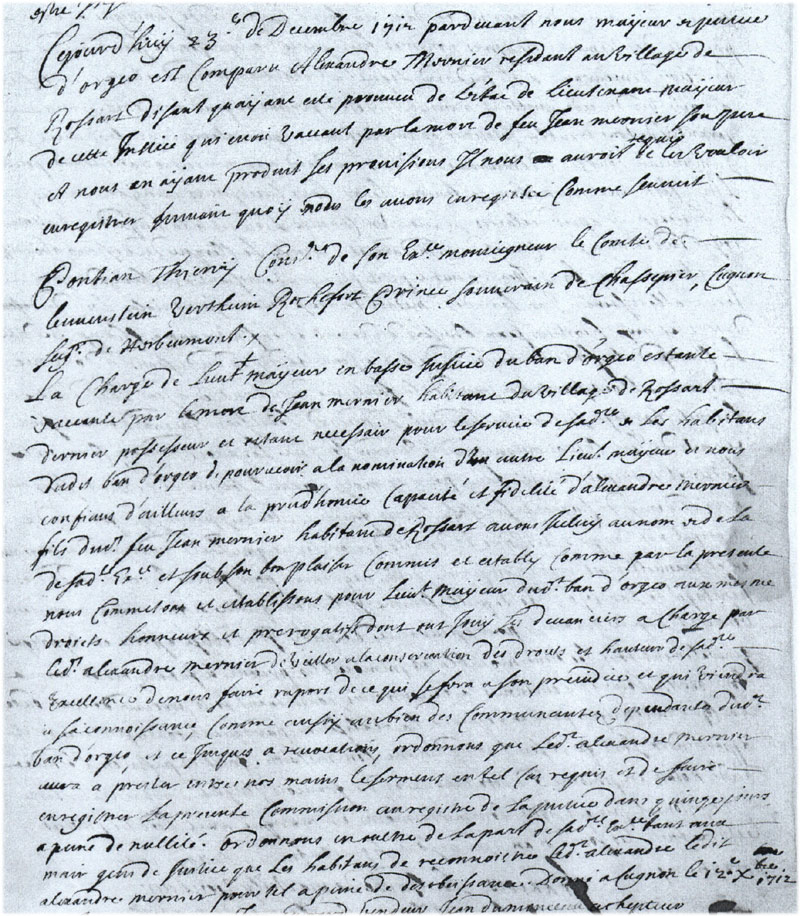 Cejourd'huy 23e de Decembre 1712 pardevant nous mayeur et justice
d'orgeo est Comparu Alexandre Mernier residant au village de
Rossart disant qu'ayant esté pourveu de l'estat de Lieutenant mayeur
de cette Justice qui estoit vaccant par la mort de feu Jean mernier son pere
et nous en ayant produit ses provisions Il nous auroit requis de les vouloir
enregistrer suivant quoy nous les avons enregistré Comme s'ensuit
Pontian Thierry Cons.er de Son Ex.ce monseigneur le Comte de
leuvenstein Vertheim Rochefort Prince souverain de Chassepier, Cugnon
seig.r de Herbeumont.
La Charge de Lieut.t mayeur en basse Justice du ban d'orgeo estante
vaccante par la mort de Jean mernier habitant du village de Rossart
dernier possesseur et estant necessair pour le service de sad.te et les habitans
dudit ban d'orgeo de pourveoir a la nomination d'un autre Lieut. mayeur et nous
confians d'ailleurs a la prud'homie Capacité et fidelité d'alexandre mernier
fils dud.t feu Jean mernier habitant de Rossart avons Iceluy au nom et de la
de sad.te Ex.ce et soub son bon plaisir Commis et estably comme par la presente
nous Commetons et establissons pour Lieut. mayeur dud.t ban d'orgeo aux mesme
droicts honneurs et prerogatifs dont ont Jouy ses devanciers a Charge par
led.t alexandre mernier de veiller a la conservation des droits et hauteurs de sad.te
Excellence de nous faire raport de ce qui se fera a son prejudice et qui viendra
a sa connoissance, Comme aussy au bien des Communautez dependantes dud.t
ban d'orgeo et ce Jusques a revocation, ordonnons que led.t alexandre mernier
aura a prester entre nos mains le serment en tel cas requis et de faire
enregistrer la presente Commission au registre de la Justice dans quinze jours
a peine de nullité. ordonnons en outre de la part de sad.te Ex.ce tant aux
mair gens de Justice que les habitans de reconnoistre led.t alexandre ledit
alexandre mernier pour tel a peine de desobeissance. Donné a Cugnon le 12e Xbre 1712